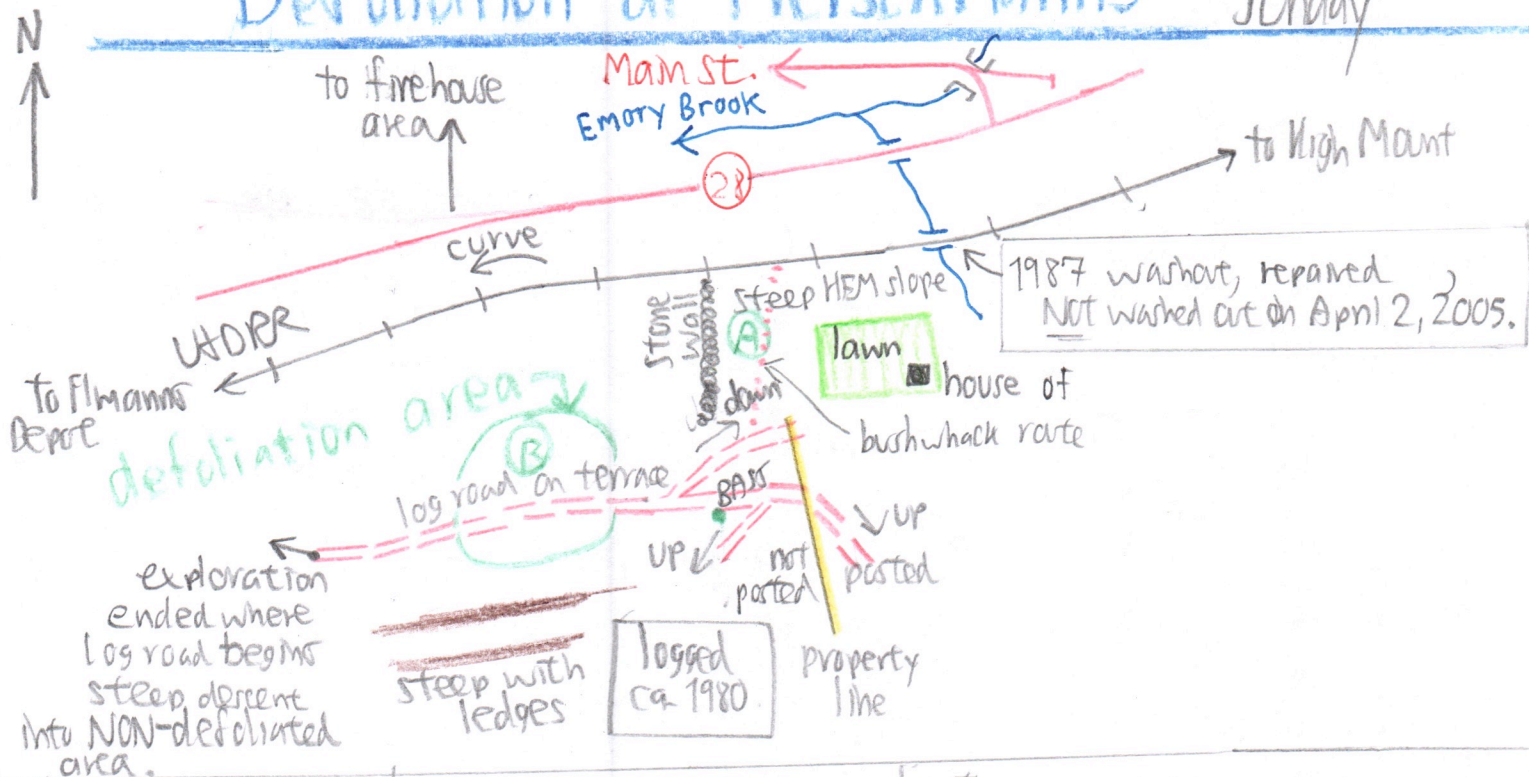 Defoliation at
Sunday
N
to firehouse
area
Main St.
Emory Brook
28
to High Mount
curve
U&DRR
to Flmanns
Depot
1987 washout, repaired,
NOT washed out on April 2, 2005.
stone
wall
steep HEM slope
A
lawn
house of
down
bushwhack route
defoliation area
B
log road on terrace
BASS
UP
UP
not
posted
posted
exploration
ended where
log road begins
steep descent
into NON-defoliated
area.
steep with
ledges
logged
ca 1980
property
line